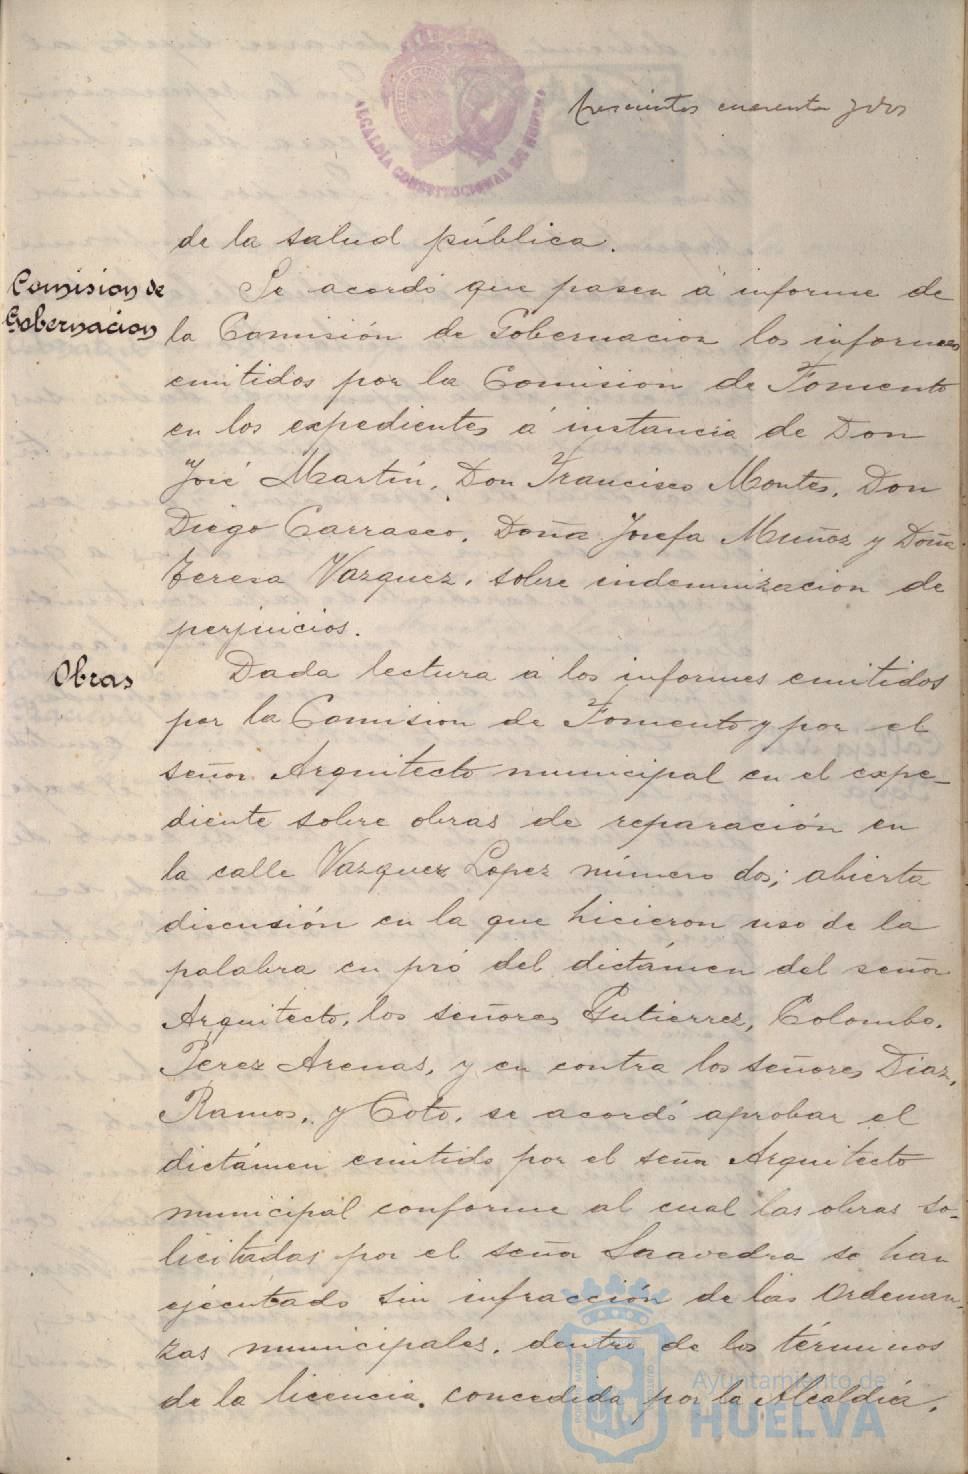 trescientos cuarenta y dos
ALCALDIA CONSTITUCIONAL DE HUELVA
de la salud pública.
Comision de
Gobernacion
Se acordó que pasen á informe de
la Comisión de Gobernacion los informes
emitidos por la Comision de Fomento
en los expedientes á instancia de Don
José Martin, Don Francisco Montes, Don
Diego Carrasco, Doña Josefa Muñoz y Doña
Teresa Vazquez, sobre indemnizacion de
perjuicios.
Obras
Dada lectura á los informes emitidos
por la Comision de Fomento y por el
señor Arquitecto municipal en el expe-
diente sobre obras de reparación en
la calle Vazquez Lopez número dos; abierta
discusión en la que hicieron uso de la
palabra en pró del dictámen del señor
Arquitecto, los señores Gutierrez, Colombo,
Perez Arenas, y en contra los señores Diaz,
Ramos, y Coto, se acordó aprobar el
dictámen emitido por el señor Arquitecto
municipal conforme al cual las obras so-
licitadas por el señor Saavedra se han
ejecutado sin infracción de las Ordenan-
zas municipales, dentro de los términos
de la licencia concedida por la Alcaldía,
Ayuntamiento de
HUELVA